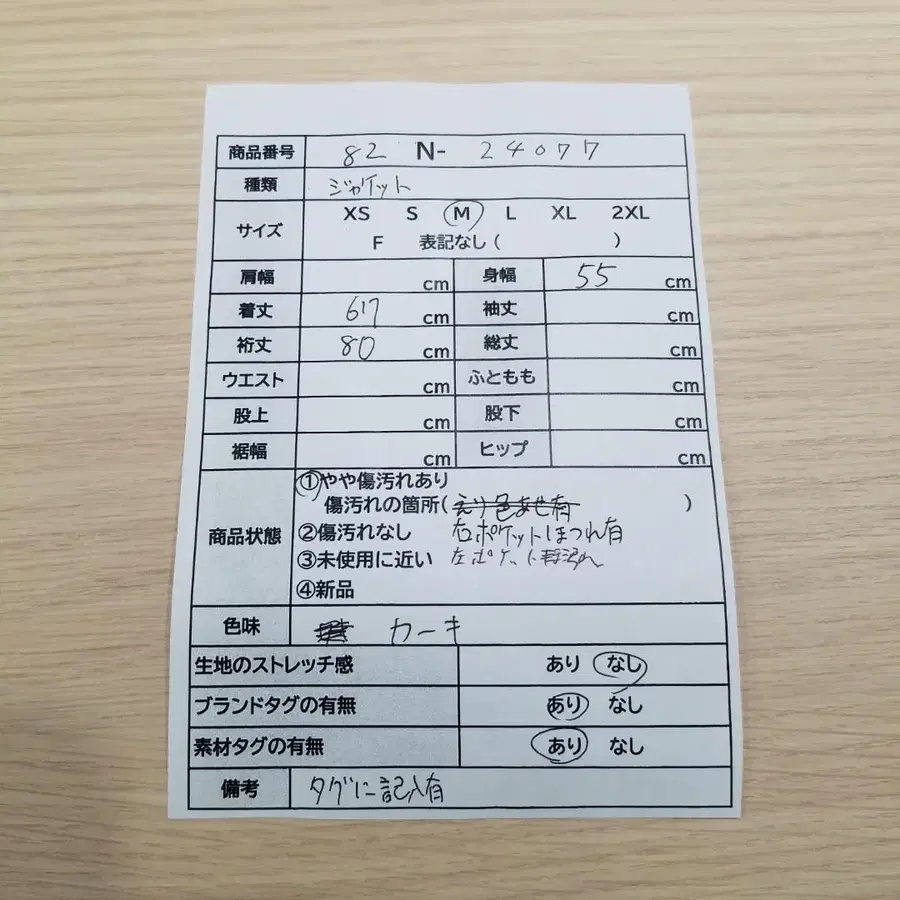 商品番号 82 N- 24077
種類 ジャケット
サイズ XS S M L XL 2XL
F 表記なし ( )
肩幅 cm 身幅 55 cm
着丈 67 cm 袖丈 cm
裄丈 80 cm 総丈 cm
ウエスト cm ふともも cm
股上 cm 股下 cm
裾幅 cm ヒップ cm
商品状態 ①やや傷汚れあり
傷汚れの箇所(えり色あせ有 )
②傷汚れなし 右ポケットほつれ有
③未使用に近い 左ポケット
④新品
色味 カーキ
生地のストレッチ感 あり なし
ブランドタグの有無 あり なし
素材タグの有無 あり なし
備考 タグに記入有